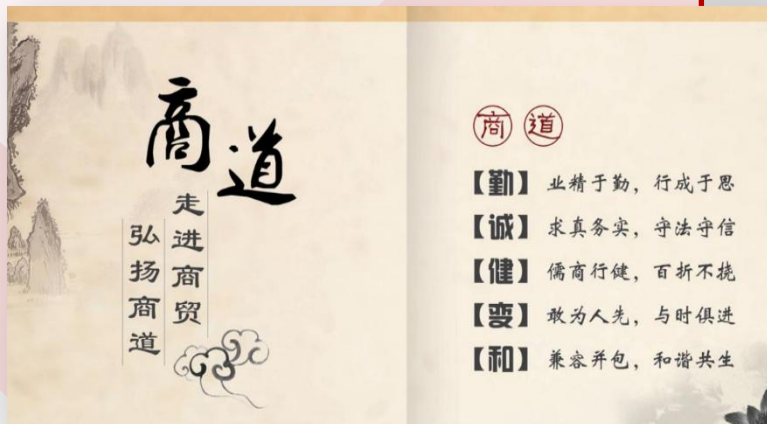 商道
走进商贸
弘扬商道
商道
【勤】业精于勤，行成于思
【诚】求真务实，守法守信
【健】儒商行健，百折不挠
【变】敢为人先，与时俱进
【和】兼容并包，和谐共生